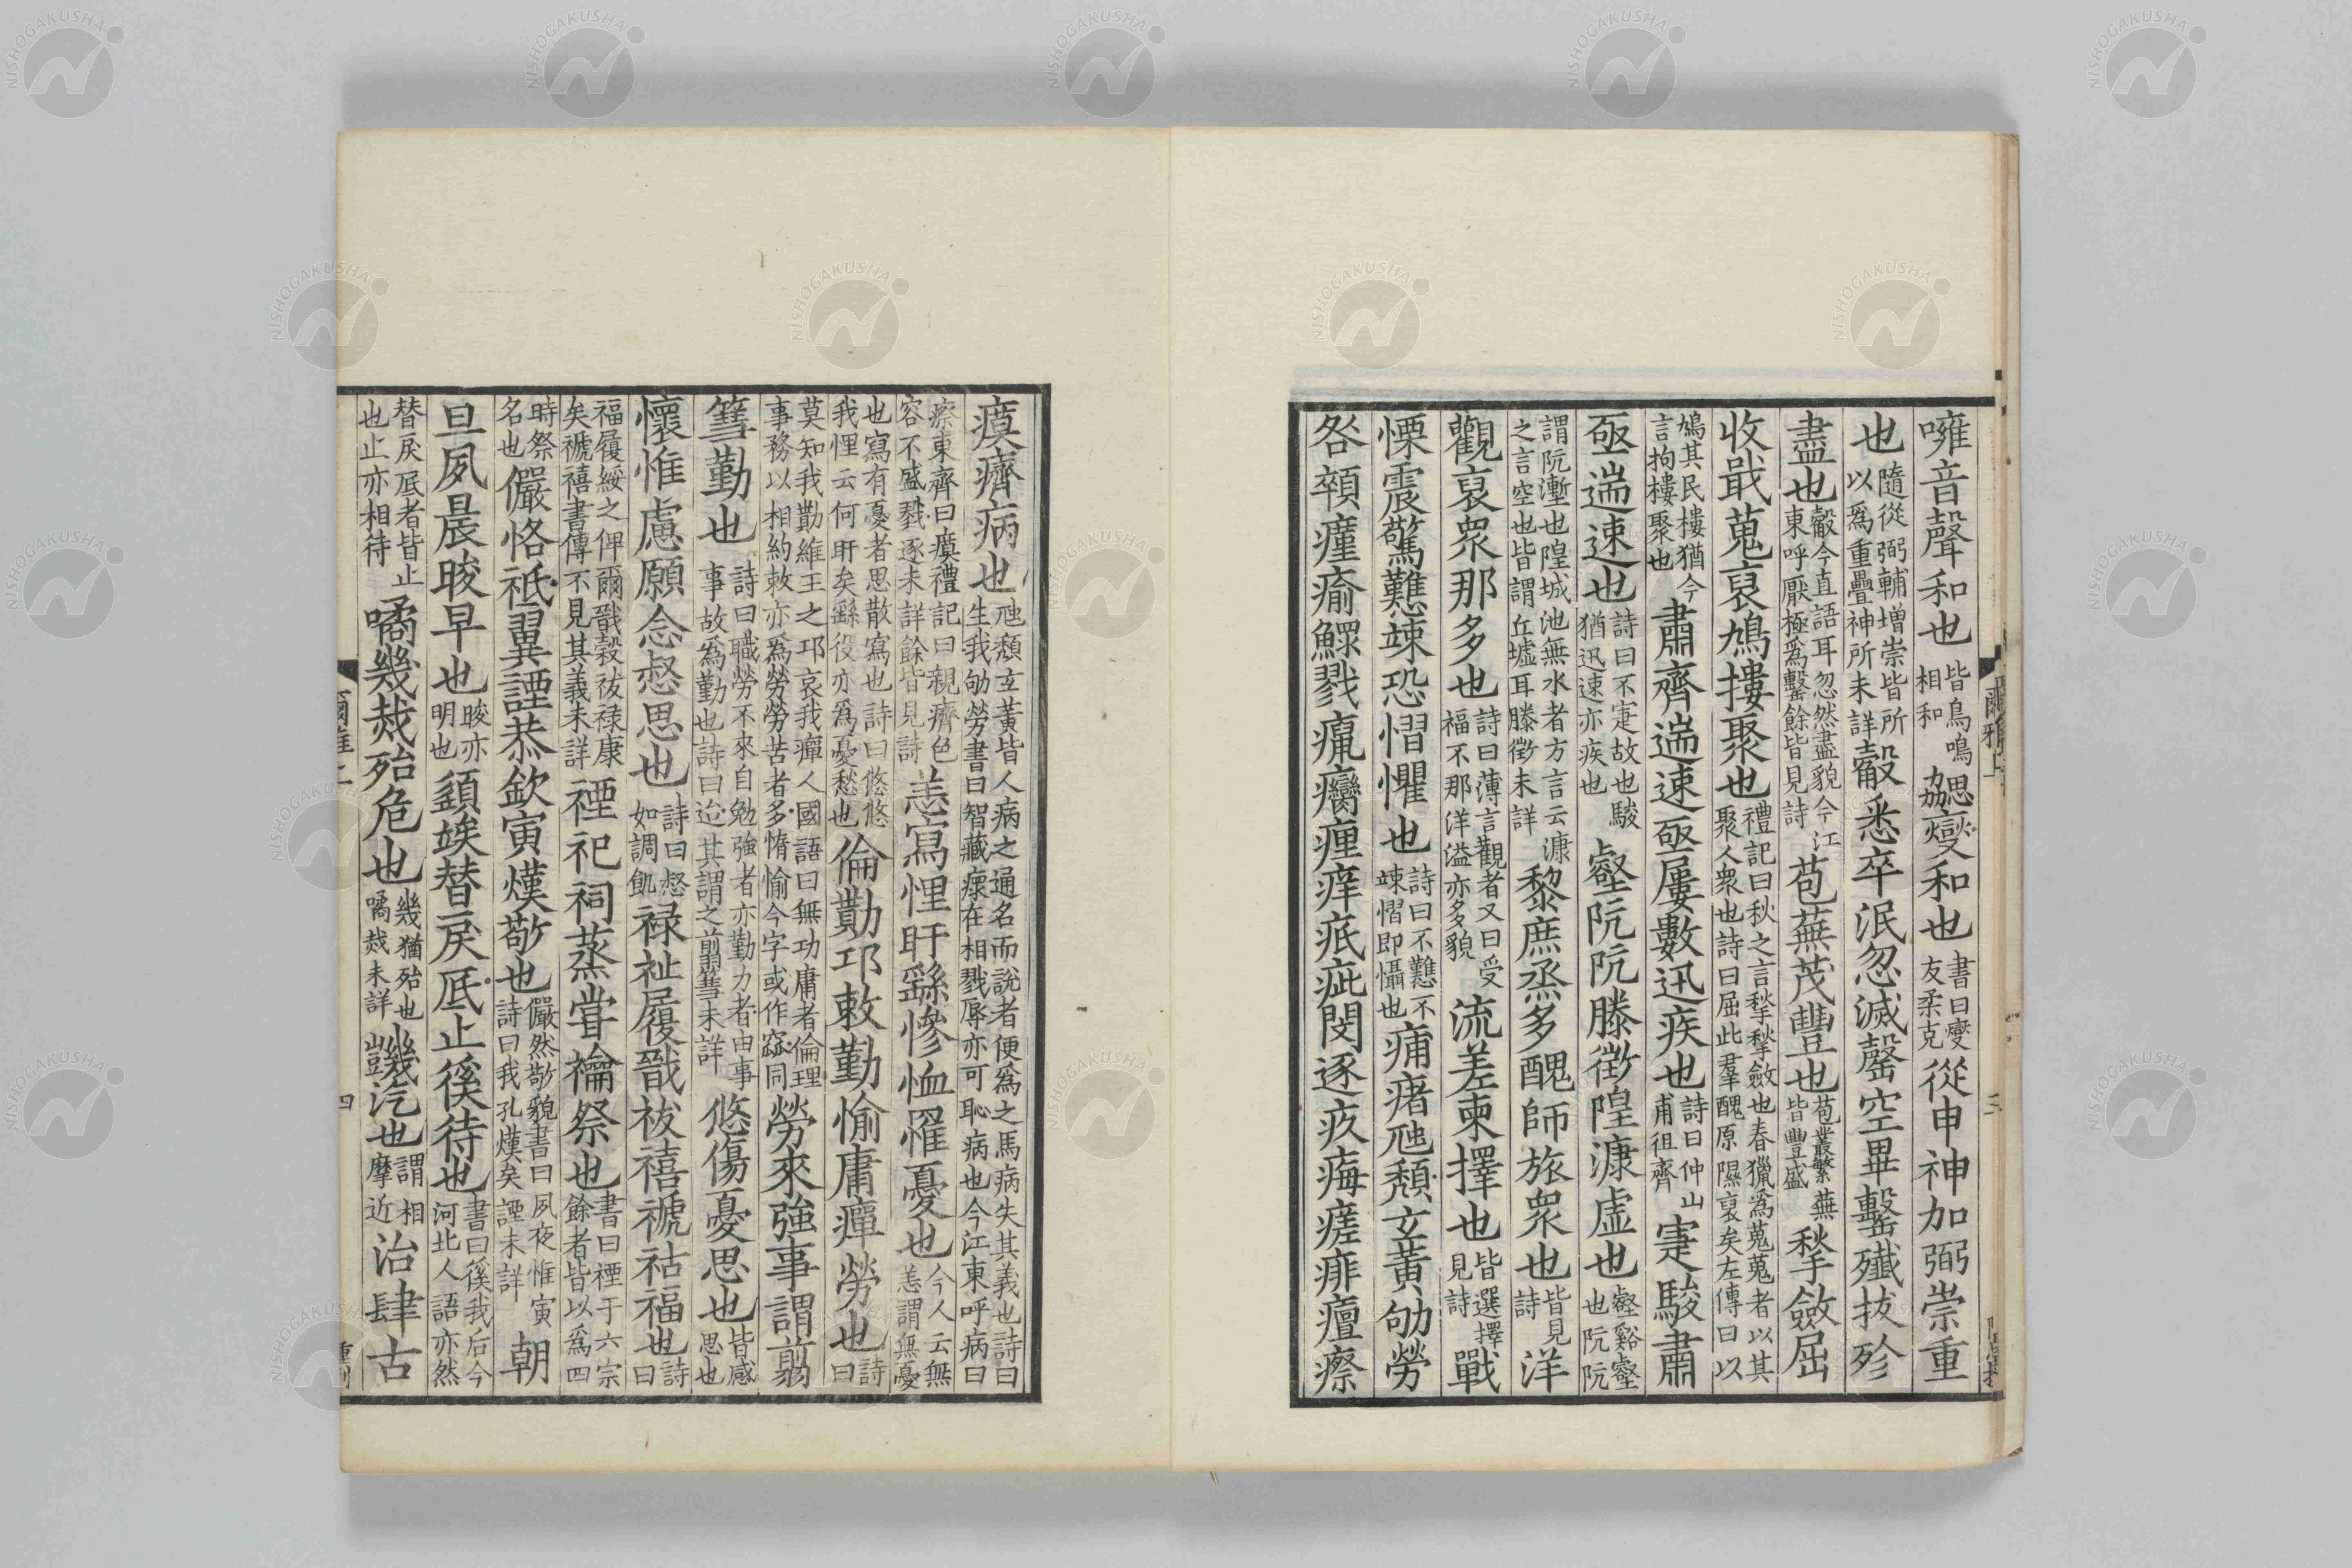 噰音聲和也皆鳥鳴相和勰燮和也書曰燮友柔克從申神加弼崇重
也隨從弼輔增崇皆所以爲重疊神所未詳觳悉卒泯忽滅罄空畢罊殲拔殄
盡也觳今直語耳忽然盡貌今江東呼厭極爲罊餘皆見詩苞蕪茂豐也苞叢繁蕪皆豐盛揫斂屈
收戢蒐裒鳩摟聚也禮記曰秋之言揫揫斂也春獵爲蒐蒐者以其聚人衆也詩曰屈此羣醜原隰裒矣左傳曰以
鳩其民樓猶今言拘樓聚也肅齊遄速亟屢數迅疾也詩曰仲山甫徂齊寁駿肅
亟遄速也詩曰不寁故也駿猶迅速亦疾也壑阬阬滕徵隍漮虛也壑谿壑也阬阬
謂阬壍也隍城池無水者方言云漮之言空也皆謂丘墟耳滕徵未詳黎庶烝多醜師旅衆也皆見詩洋
觀裒衆那多也詩曰薄言觀者又曰受福不那洋溢亦多貌流差柬擇也皆選擇見詩戰
慄震驚戁竦恐慴懼也詩曰不戁不竦慴即懾也痡瘏虺頹玄黃劬勞
咎顇瘽瘉鰥戮癙癵㾖痒疷疵閔逐疚痗瘥痱癉瘵
爾雅上
三
瘼癠病也虺頹玄黃皆人病之通名而說者便爲之馬病失其義也詩曰生我劬勞書曰智藏瘝在相戮辱亦可恥病也今江東呼病曰
瘵東齊曰瘼禮記曰親癠色容不盛戮逐未詳餘皆見詩恙寫悝盱繇慘恤罹憂也今人云無恙謂無憂
也寫有憂者思散寫也詩曰悠悠我悝云何盱矣繇役亦爲憂愁也倫勩邛敕勤愉庸癉勞也詩曰
莫知我勩維王之邛哀我癉人國語曰無功庸者倫理事務以相約敕亦爲勞勞苦者多惰愉今字或作窳同勞來強事謂翦
篲勤也詩曰職勞不來自勉強者亦勤力者由事事故爲勤也詩曰迨其謂之翦篲未詳悠傷憂思也皆感思也
懷惟慮願念惄思也詩曰惄如調飢祿祉履戩祓禧禠祜福也詩曰
福履綏之俾爾戩穀祓祿康矣禠禧書傳不見其義未詳禋祀祠蒸嘗禴祭也書曰禋于六宗餘者皆以爲四
時祭名也儼恪祗翼諲恭欽寅熯敬也儼然敬貌書曰夙夜惟寅詩曰我孔熯矣諲未詳朝
旦夙晨晙早也晙亦明也顉竢替戾厎止徯待也書曰徯我后今河北人語亦然
替戾厎者皆止也止亦相待噊幾烖殆危也幾猶殆也噊烖未詳譏汔也謂相摩近治肆古
爾雅上
四